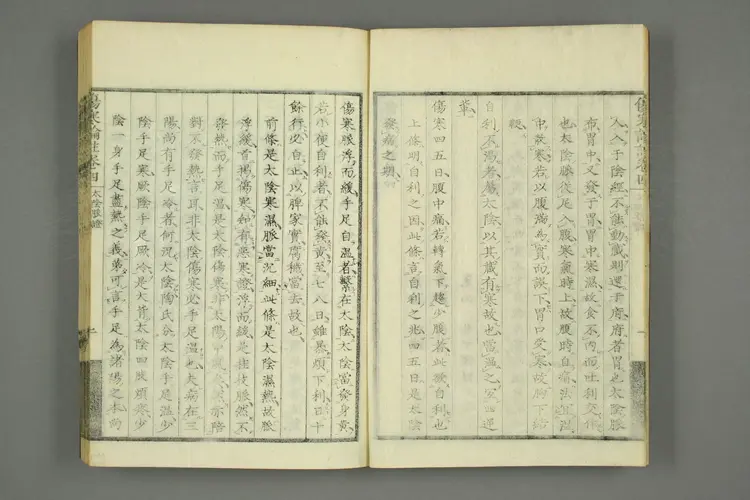 入入于陰經不能動藏則還于府府者胃也太陰脈
布胃中又發于胃胃中寒濕故食不內而吐利交作
也太陰脈從足入腹寒氣時上故腹時自痛法宜溫
中散寒若以腹滿為實而誤下胃口受寒故胸下結
硬
自利不渴者屬太陰以其藏有寒故也當溫之宜四逆
輩
傷寒四五日腹中痛若轉氣下趨少腹者此欲自利也
上條明自利之因此條言自利之兆四五日是太陰
發病之期
傷寒脈浮而緩手足自溫者繫在太陰太陰當發身黃
若小便自利者不能發黃至七八日雖暴煩下利日十
餘行必自止以脾家實腐穢當去故也
前條是太陰寒濕脈當沉細此條是太陰濕熱故脈
浮緩首揭傷寒知有惡寒證浮而緩是桂枝脈然不
發熱而手足溫是太陰傷寒非太陽
對不發熱言耳非太陰傷寒必手足溫也夫病在三
陽尚有手足冷者何況太陰陶氏分太陰手足溫少
陰手足寒厥陰手足厥冷是大背太陰四肢煩疼少
陰一身手足盡熱之義第可言手足為諸陽之本尚
傷寒論註卷四
太陰脈證